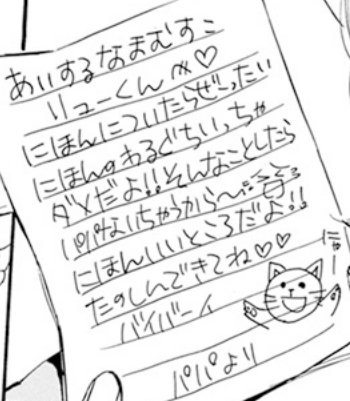 あいするなまむすこ
リューくんへ♡
にほんについたらぜーったい
にほんのわるぐちいっちゃ
ダメだよ!!そんなことしたら
パパないちゃうから〜
にほんいいところだよ!!
たのしんできてね♡♡
バイバーイ
パパより